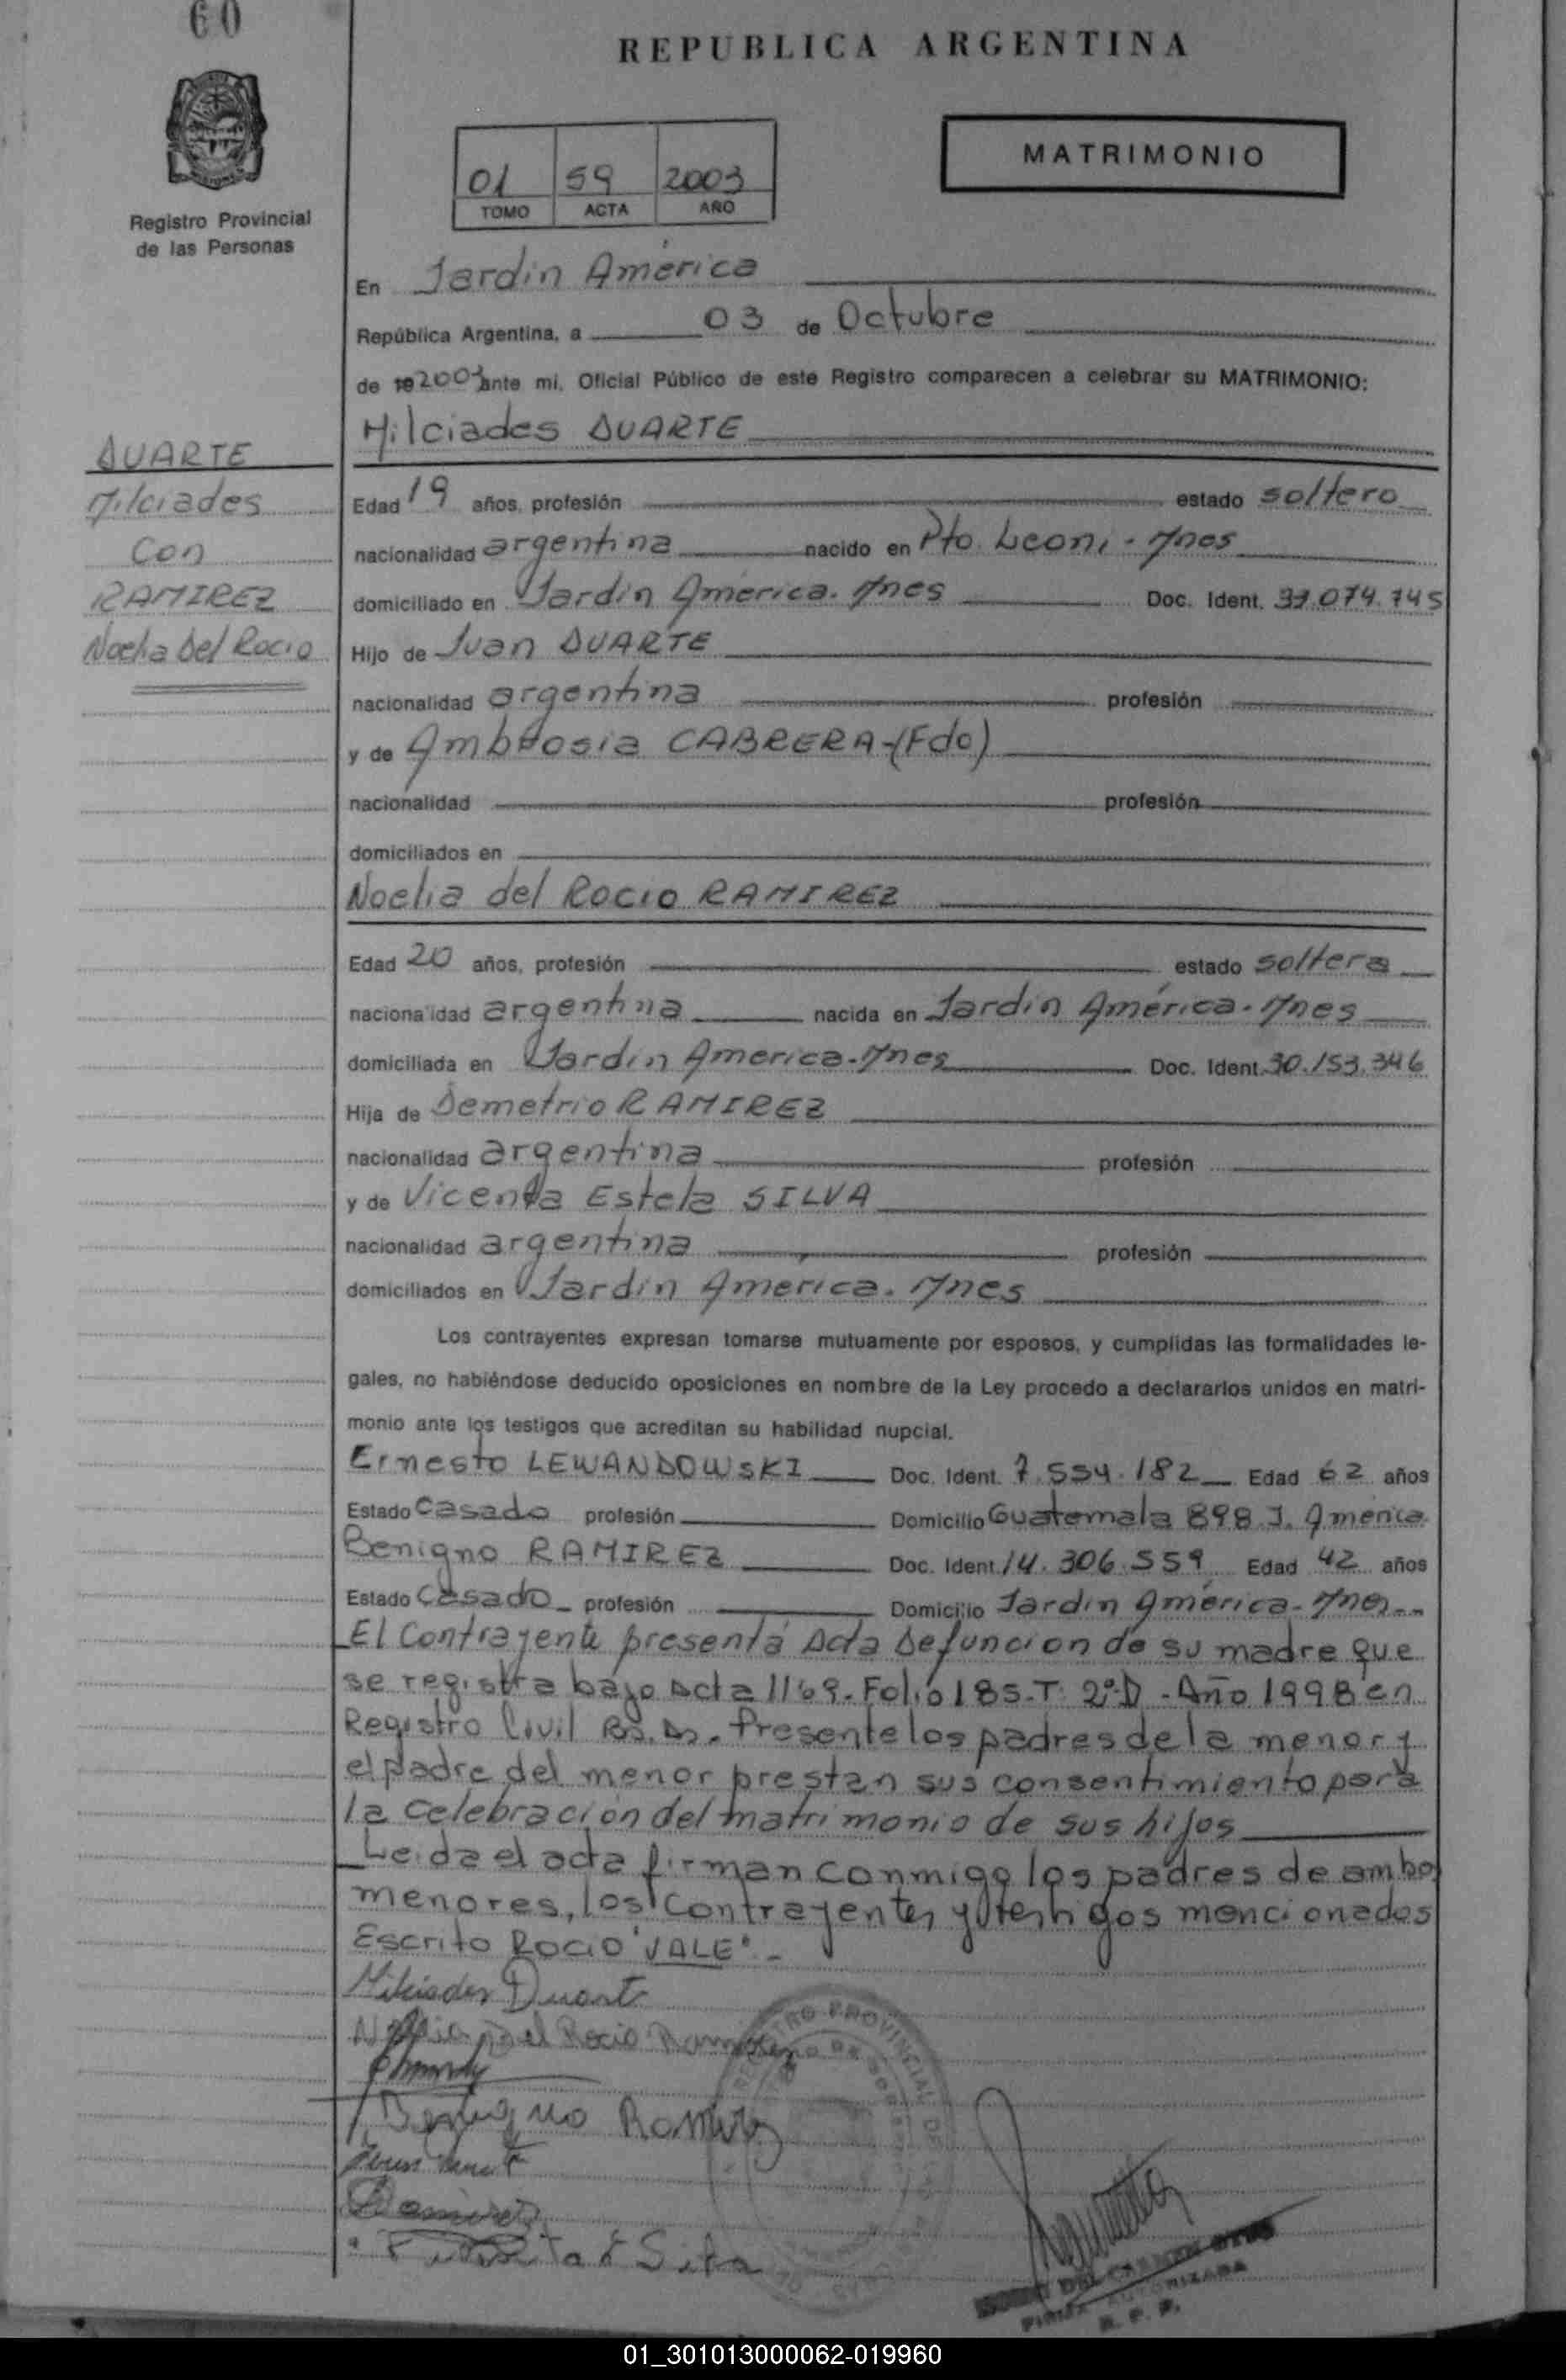 60
REPUBLICA ARGENTINA
MATRIMONIO
01 59 2003
TOMO ACTA AÑO
Registro Provincial
de las Personas
En Jardín América
República Argentina, a 03 de Octubre
de 19 2003 ante mi, Oficial Público de este Registro comparecen a celebrar su MATRIMONIO:
Milciades DUARTE
DUARTE
Milciades
con
RAMIREZ
Noelia Del Rocio
Edad 19 años, profesión estado soltero
nacionalidad argentina nacido en Pto. Leoni - Mnes
domiciliado en Jardín América. Mnes Doc. Ident. 074.745
Hijo de Juan DUARTE
nacionalidad argentina profesión
y de Ambrosia CABRERA-(Fdo)
nacionalidad profesión
domiciliados en
Noelia del Rocio RAMIREZ
Edad 20 años, profesión estado soltera
nacionalidad argentina nacida en Jardín América. Mnes
domiciliada en Jardín America. Mnes Doc. Ident. 30.153.346
Hija de Demetrio RAMIREZ
nacionalidad argentina profesión
y de Vicenta Estela SILVA
nacionalidad argentina profesión
domiciliados en Jardín America. Mnes
Los contrayentes expresan tomarse mutuamente por esposos, y cumplidas las formalidades le-
gales, no habiéndose deducido oposiciones en nombre de la Ley procedo a declararlos unidos en matri-
monio ante los testigos que acreditan su habilidad nupcial.
Ernesto LEWANDOWSKI Doc. Ident. 7.554.182 Edad 62 años
Estado casado profesión Domicilio Guatemala 898 J. América
Benigno RAMIREZ Doc. Ident. 14.306.559 Edad 42 años
Estado casado profesión Domicilio Jardín América - Mnes
El Contrayente presenta Acta Defuncion de su madre que
se registra bajo Acta 1169. Folio 185. T. 2º D - Año 1998 en
Registro Civil Bs. As. Presente los padres de la menor y
el padre del menor prestan sus consentimiento para
la celebración del matrimonio de sus hijos
Leida el acta firman conmigo los padres de ambos
menores, los contrayentes y testigos mencionados
Escrito ROCIO "VALE".-
Milciades Duarte
Noelia Del Rocio Ramirez
Benigno Ramirez
Juan Duarte
Ramirez
REGISTRO PROVINCIAL DE LAS
DEL CARMEN
FIRMA AUTORIZADA
R. P. P.
01_301013000062-019960